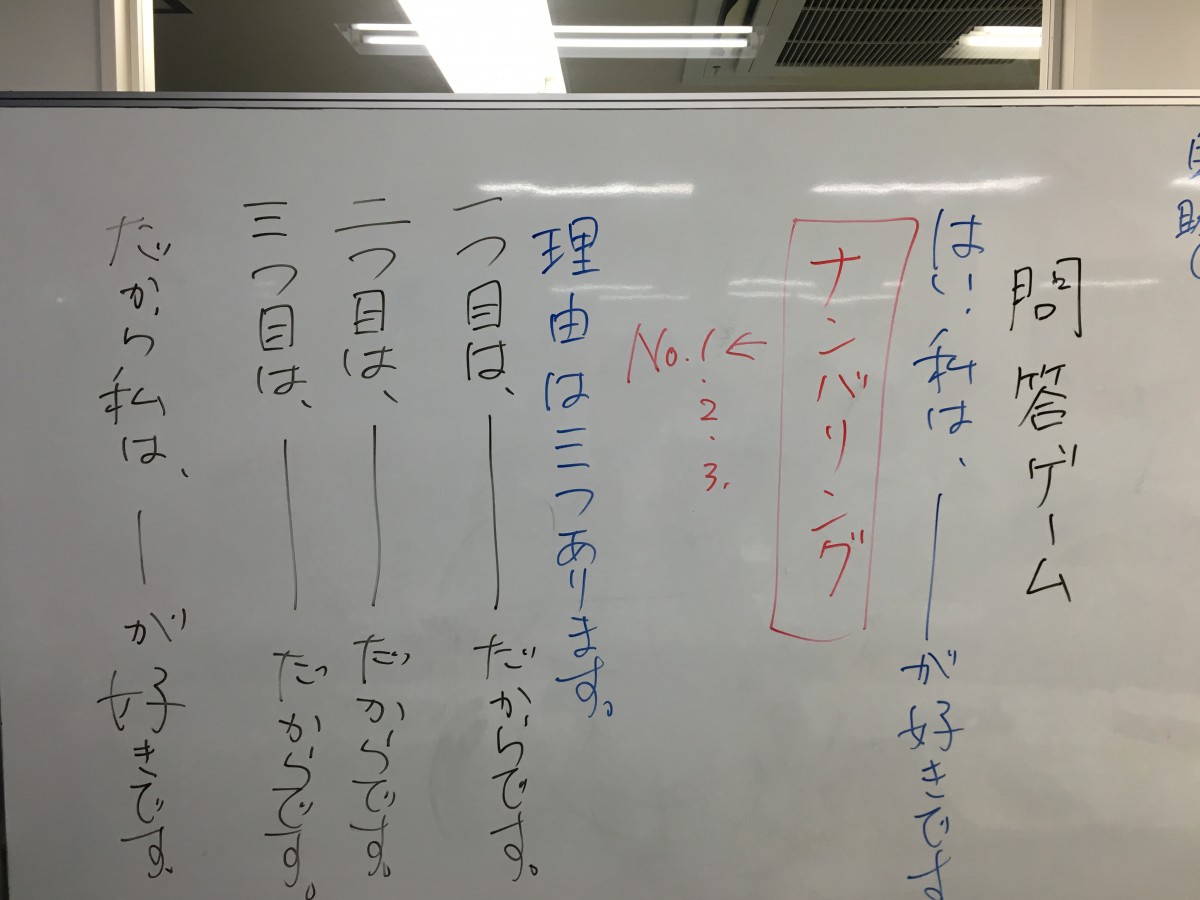 問答ゲーム
はい、私は、――が好きです
ナンバリング
No.1←
.2
.3.
理由は三つあります。
一つ目は、――だからです。
二つ目は、――だからです。
三つ目は、――だからです。
だから私は、―が好きです。